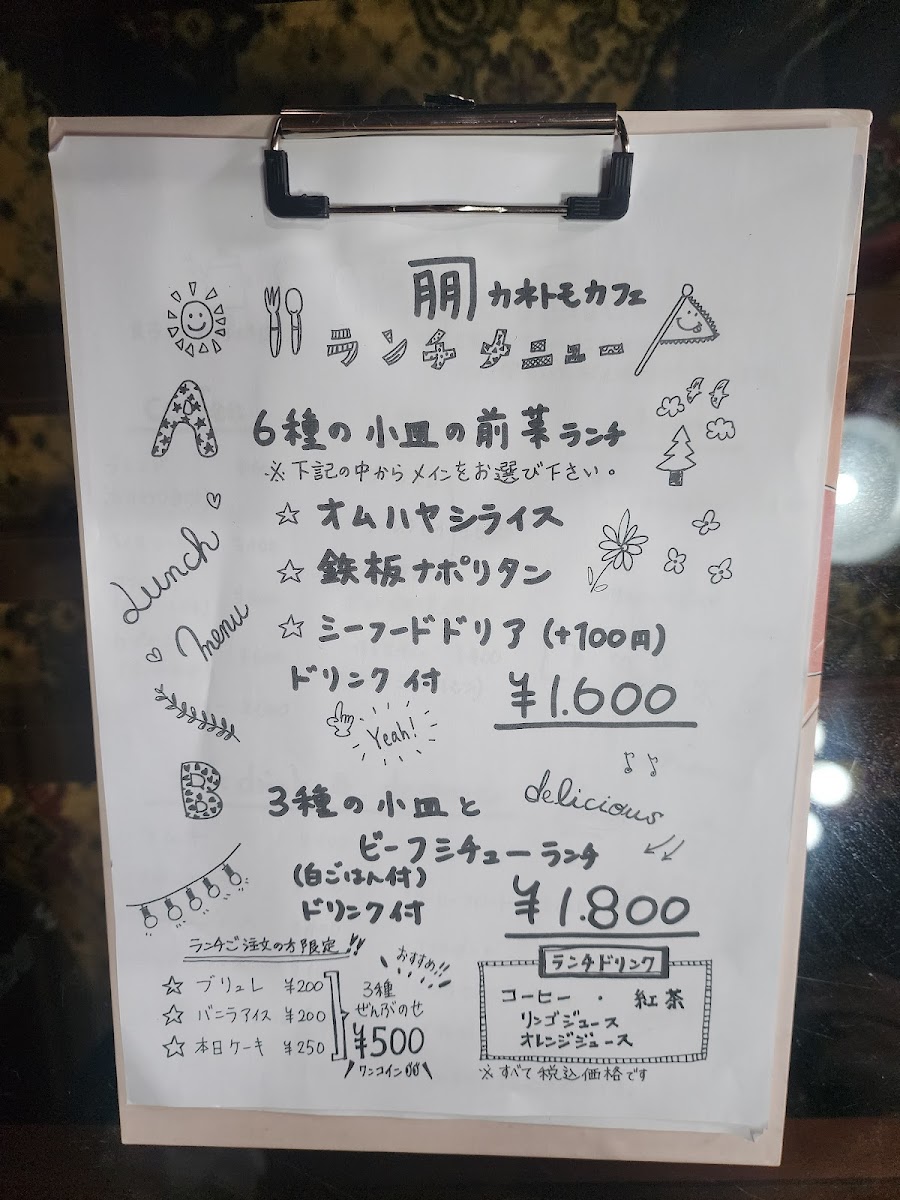 朋 カネトモカフェ
ランチメニュー
A
6種の小皿の前菜ランチ
※下記の中からメインをお選び下さい。
☆ オムハヤシライス
☆ 鉄板ナポリタン
☆ シーフードドリア (+100円)
ドリンク付 ¥1.600
Lunch
menu
Yeah!
B
3種の小皿と
ビーフシチューランチ
(白ごはん付)
ドリンク付 ¥1.800
delicious
ランチご注文の方限定!!
☆ ブリュレ ¥200
☆ バニラアイス ¥200
☆ 本日ケーキ ¥250
おすすめ!!
3種
ぜんぶのせ
¥500
ワンコイン
ランチドリンク
コーヒー ・ 紅茶
リンゴジュース
オレンジジュース
※すべて税込価格です